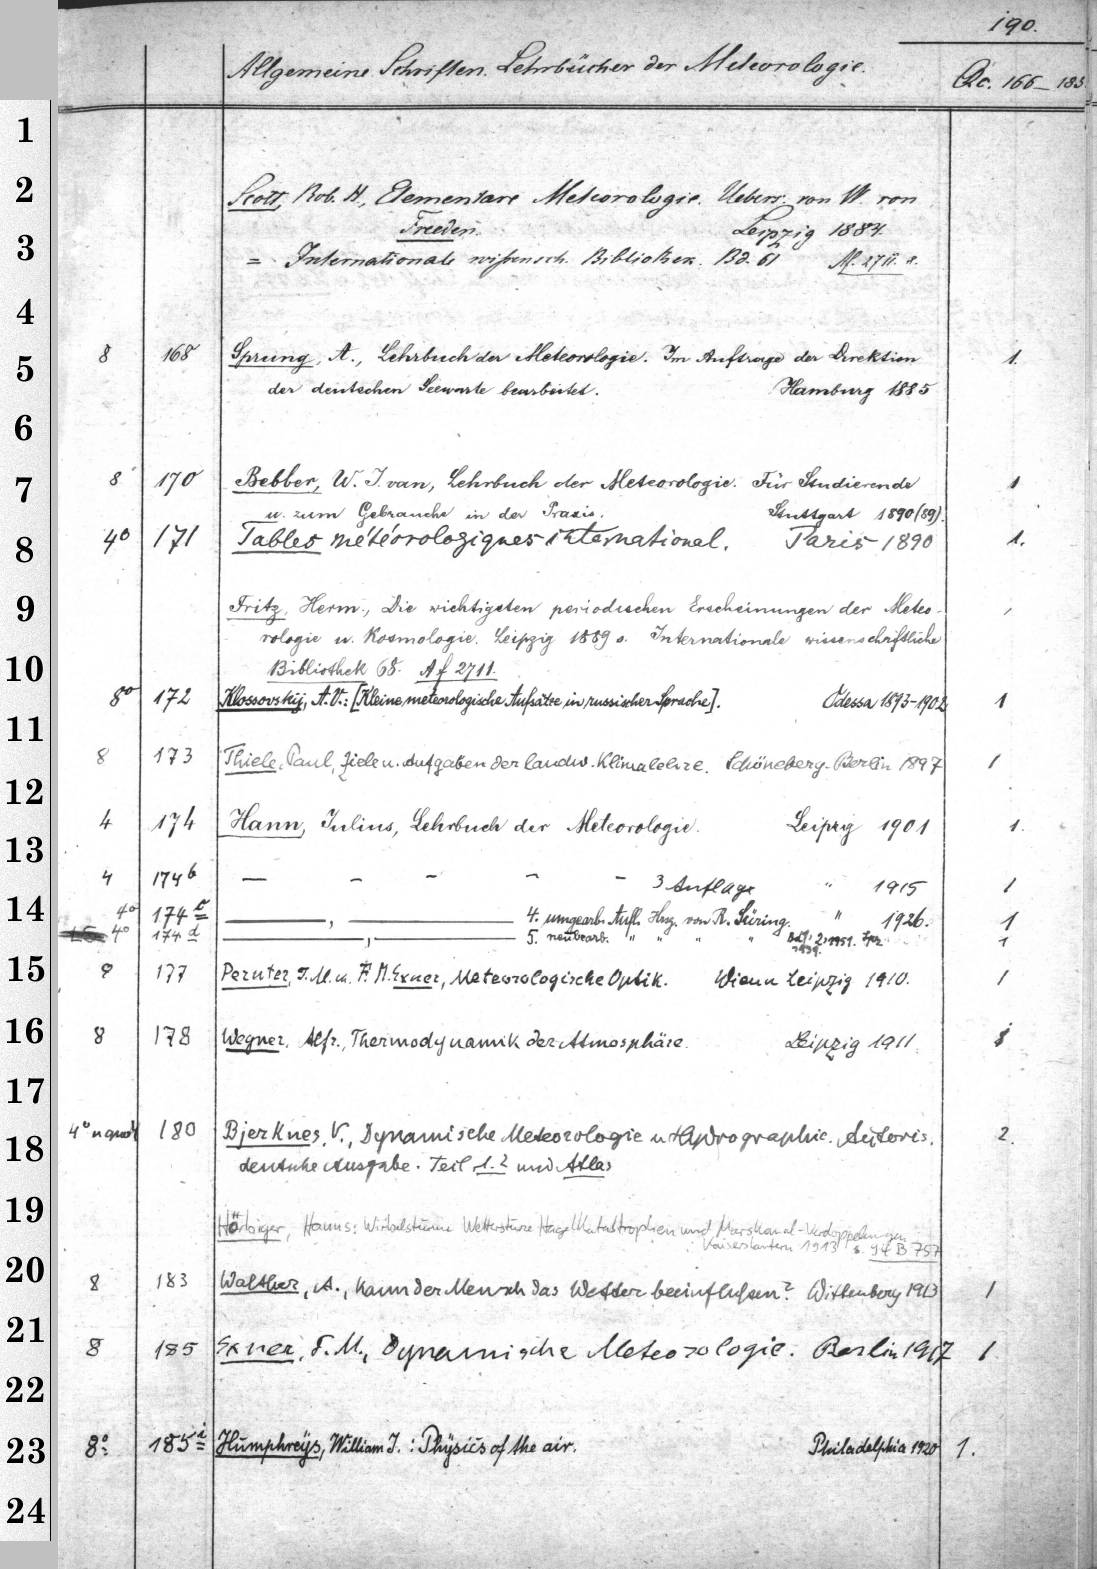 190.
Allgemeine Schriften. Lehrbücher der Meteorologie.
Qc. 166 – 185
1
2
Scott, Rob. H., Elementare Meteorologie. Uebers. von W. von
Freeden. Leipzig 1884.
3
= Internationale wissensch. Bibliothek. Bd. 61
4
8 168 Sprung, A., Lehrbuch der Meteorologie. Im Auftrage der Direktion 1.
5
der deutschen Seewarte bearbeitet. Hamburg 1885
6
8° 170 Bebber, W. J. van, Lehrbuch der Meteorologie. Für Studierende 1
7
u. zum Gebrauche in der Praxis. Stuttgart 1890 (89).
8
4° 171 Tables météorologiques international. Paris 1890 1.
9
Fritz, Herm., Die wichtigsten periodischen Erscheinungen der Meteo-
rologie u. Kosmologie. Leipzig 1889 s. Internationale wissenschaftliche
10
Bibliothek 68. Af 2711.
8° 172 Klossovskij, A.V.: [Kleine meteorologische Aufsätze in russischer Sprache]. Odessa 1893-1902 1
11
8 173 Thiele, Paul, Ziele u. Aufgaben der landw. Klimalehre. Schöneberg-Berlin 1897 1
12
4 174 Hann, Julius, Lehrbuch der Meteorologie. Leipzig 1901 1.
13
4 174b — – – – – 3 Auflage " 1915 1
14
4° 174c ———, ——— 4. umgearb. Aufl. Hrsg. von R. Süring. " 1926. 1
4° 174d ———, ——— 5. neubearb. " " " " Bd. 1: 1939. 2: 1951. Lpz. 1
15
8 177 Pernter, J. M. u. F. M. Exner, Meteorologische Optik. Wien u Leipzig 1910. 1
16
8 178 Wegner, Alfr., Thermodynamik der Atmosphäre. Leipzig 1911. 1
17
4° u quer 180 Bjerknes, V., Dynamische Meteorologie u Hydrographie. Autoris. 2.
18
deutsche Ausgabe. Teil 1. 2 und Atlas
19
Hörbiger, Hanns: Wirbelstürme Wetterstürze Hagelkatastrophen und Marskanal-Verdoppelungen
Kaiserslautern 1913 s. 94 B 757
20
8 183 Walther, A., Kann der Mensch das Wetter beeinflussen? Wittenberg 1913 1
21
8 185 Exner, F. M., Dynamische Meteorologie. Berlin 1917 1
22
23
8° 185i Humphreÿs, William J.: Phÿsics of the air. Philadelphia 1920 1.
24